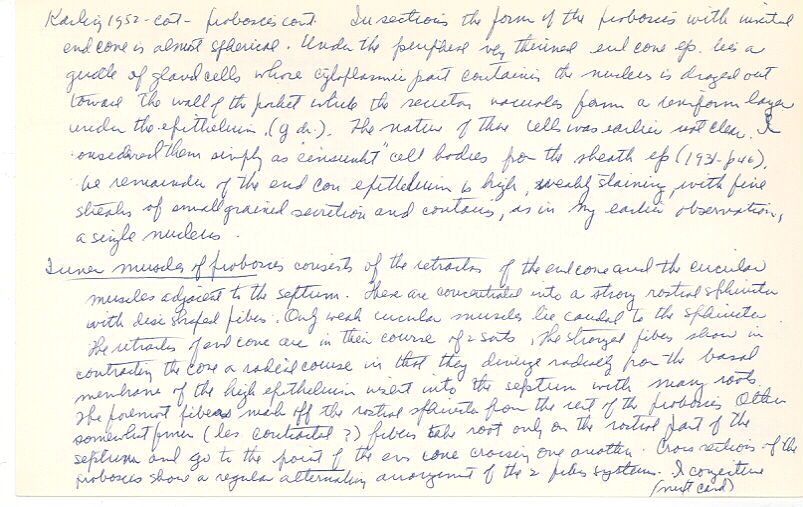 Karling 1952 - cont - proboscis cont. In sections the form of the proboscis with inverted
end cone is almost spherical. Under the peripheral very thinned end cone ep. lies a
girdle of gland cells whose cytoplasmic part containing the nucleus is draged out
toward the wall of the pocket while the secretory vacuoles form a reniform layer
under the epithelium. (g dr.). The nature of these cells was earlier not clear. I
onsidered them simply as "einsenkt" cell bodies from the sheath ep (1931-p46).
he remainder of the end con epithelium is high, weakly staining, with fine
streaks of small grained secretion and contains, as in my earlier observation,
a single nucleus.
Inner muscles of proboscis consists of the retractors of the end cone and the circular
muscles adjacent to the septum. These are concentrated into a strong rostral sphincter
with disc shaped fibers. Only weak circular muscles lie caudal to the sphincter
The retractors of end cone are in their course of 2 sorts. The stronger fibers show in
contracting the cone a radial course in that they diverge radially from the basal
membrane of the high epithelium insert into the septum with many roots
The foremost fibers mark off the rostral sphincter from the rest of the proboscis Other
somewhat finer (les contracted ?) fibers take root only on the rostral part of the
septum and go to the point of the end cone crossing one another. Cross sections of the
proboscis show a regular alternating arrangement of the 2 fiber systems. I conjecture
(next card)